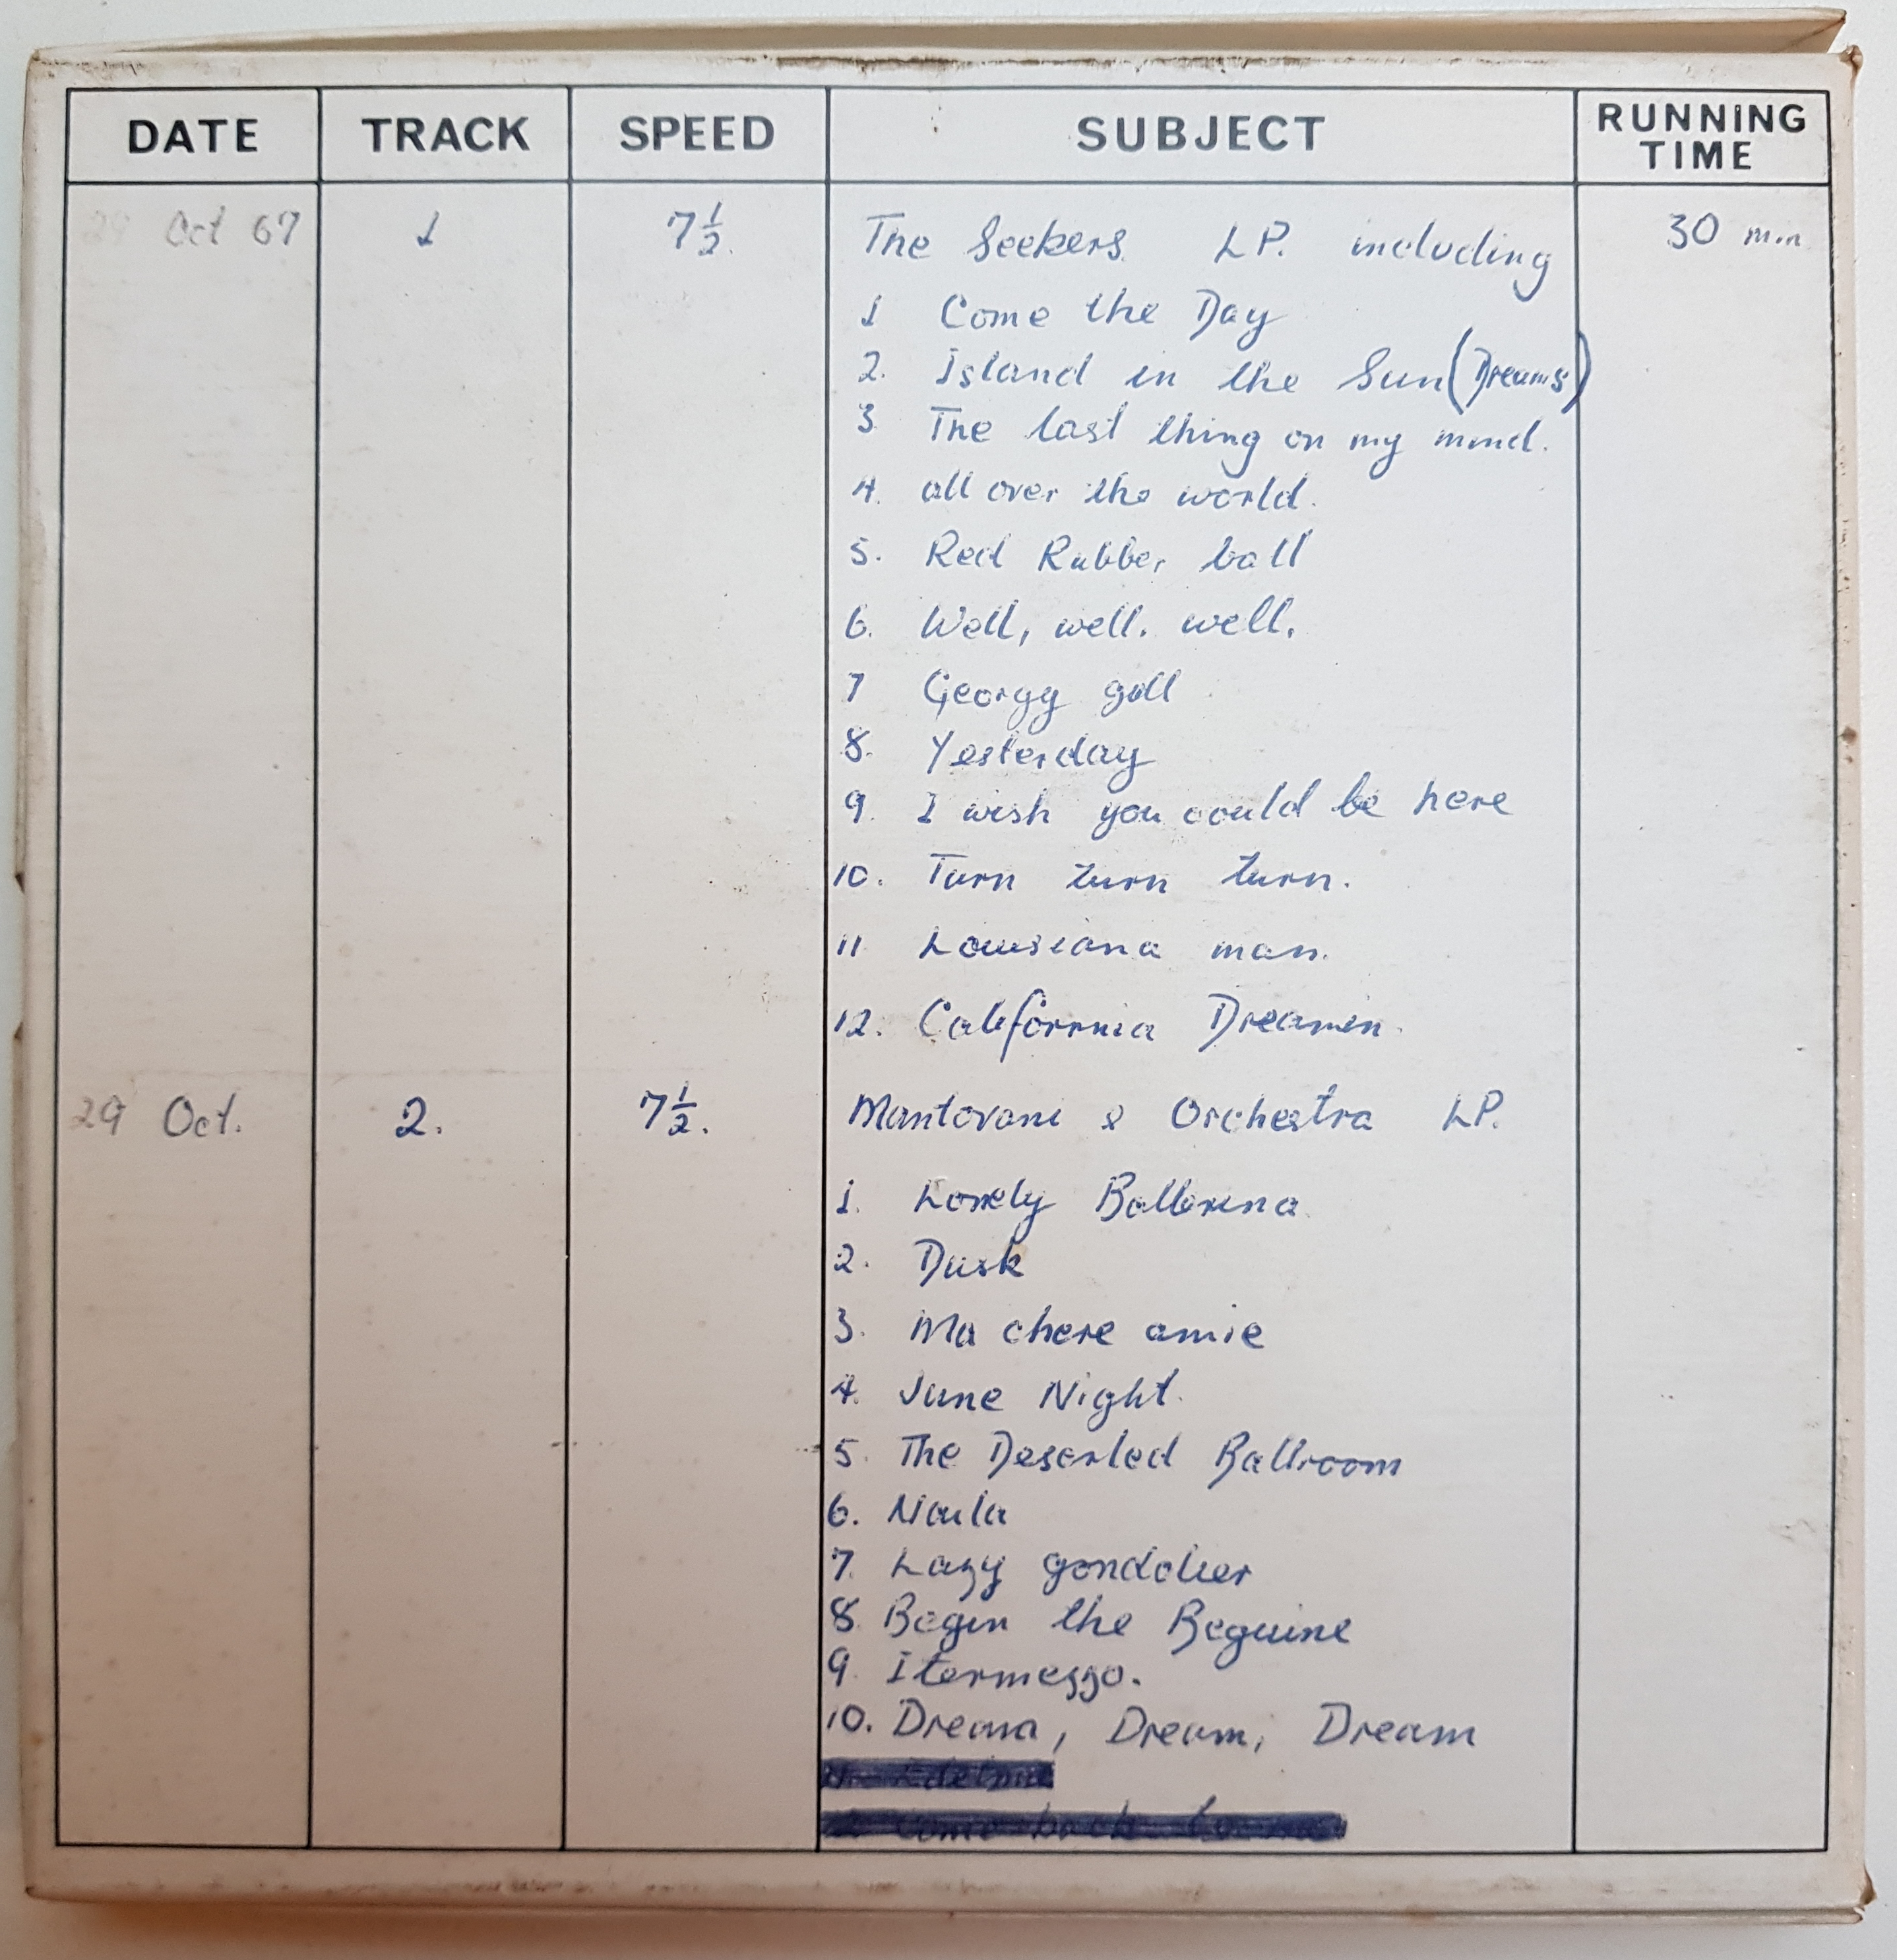 DATE TRACK SPEED SUBJECT RUNNING TIME
29 Oct 67 1 7½. The Seekers. LP. including 30 min
1 Come the Day
2. Island in the Sun (Dreams)
3 The last thing on my mind.
4. all over the world.
5. Red Rubber ball
6. Well, well. well.
7 Georgy goll
8. Yesterday
9. I wish you could be here
10. Turn turn turn.
11 Louisiana man.
12. California Dreamin.
29 Oct. 2. 7½. Mantovani & Orchestra LP.
1. Lonely Ballerina.
2. Dusk
3. Ma chere amie
4. June Night.
5. The Deserted Ballroom
6. Naila
7. Lazy gondolier
8. Begin the Beguine
9. Itermezzo.
10. Dream, Dream, Dream